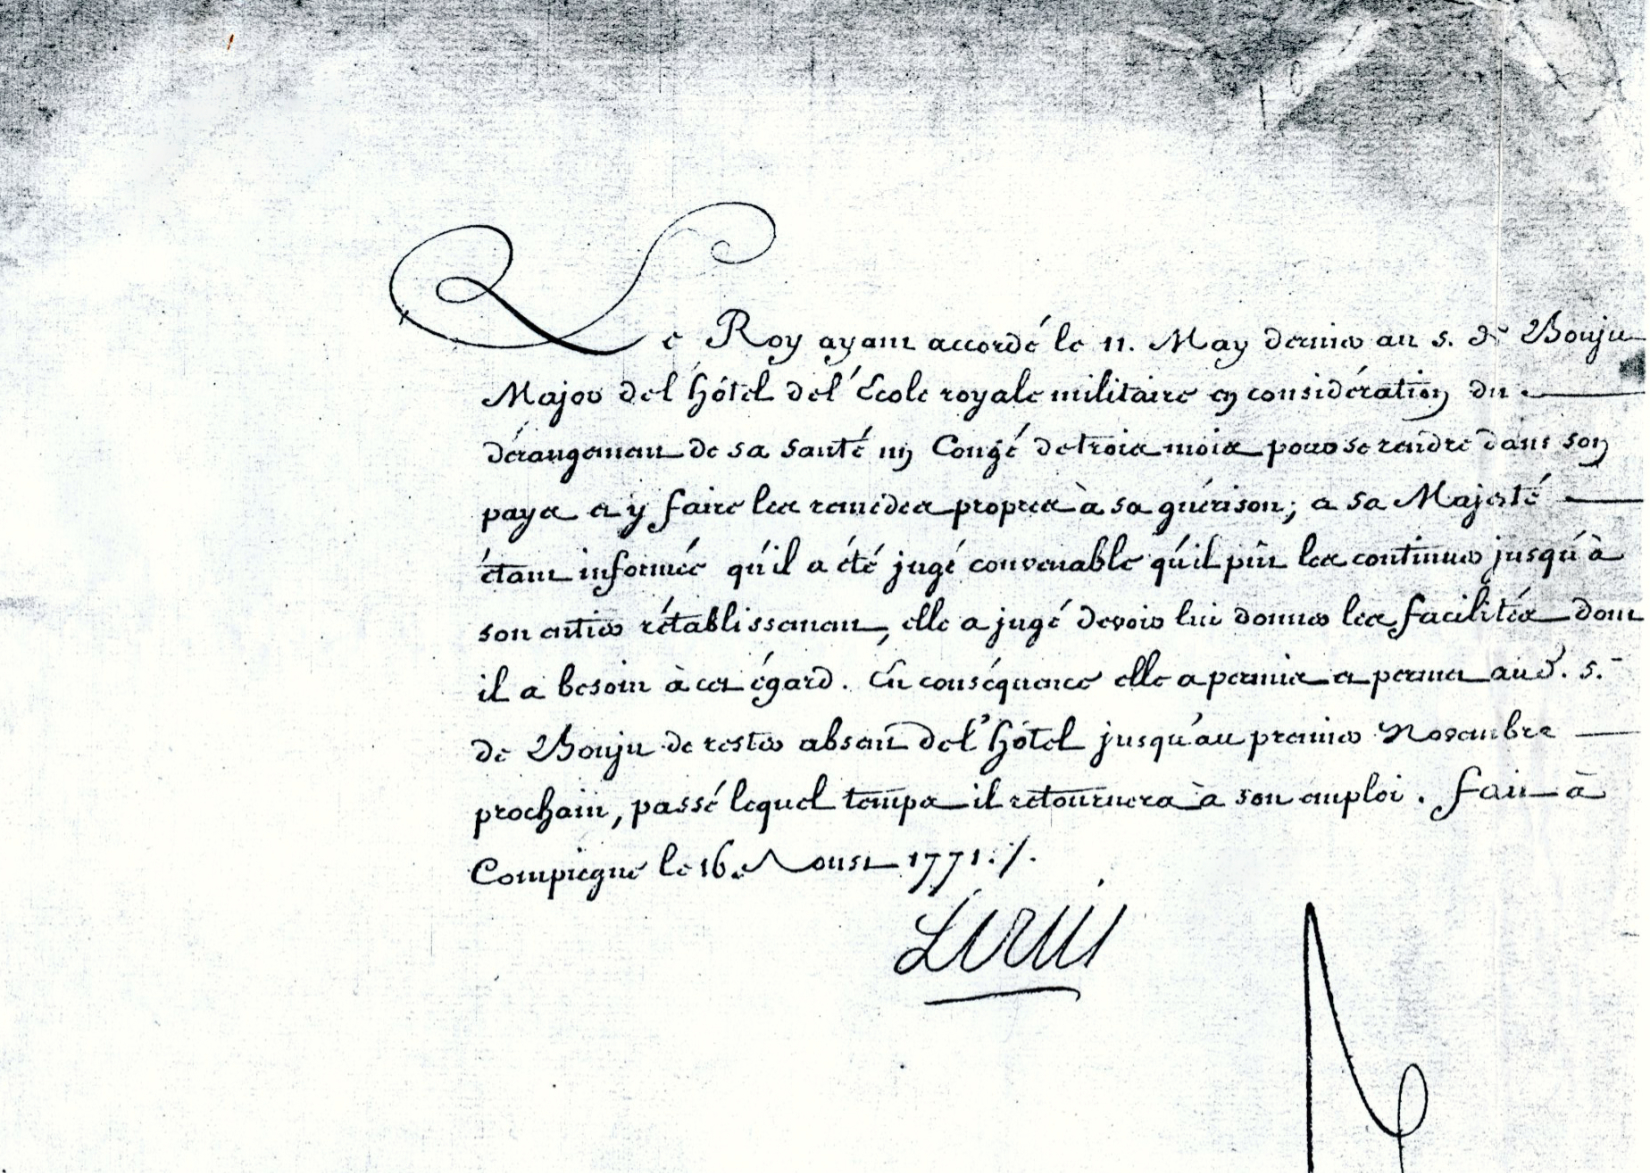 Le Roy ayant accordé le 11. May dernier au S. de Bouju
Major de l'hôtel de l'École royale militaire en considération du
dérangement de sa santé un Congé de trois mois pour se rendre dans son
pays et y faire les remedes propres à sa guérison; et sa Majesté
étant informée qu'il a été jugé convenable qu'il pût les continuer jusqu'à
son entier rétablissement, elle a jugé devoir lui donner les facilités dont
il a besoin à cet égard. En conséquence elle a permis et permet aud. S.
de Bouju de rester absent de l'hôtel jusqu'au premier Novembre
prochain, passé lequel temps il retournera à son emploi. Fait à
Compiegne le 16. Aoust 1771. /.
Louis